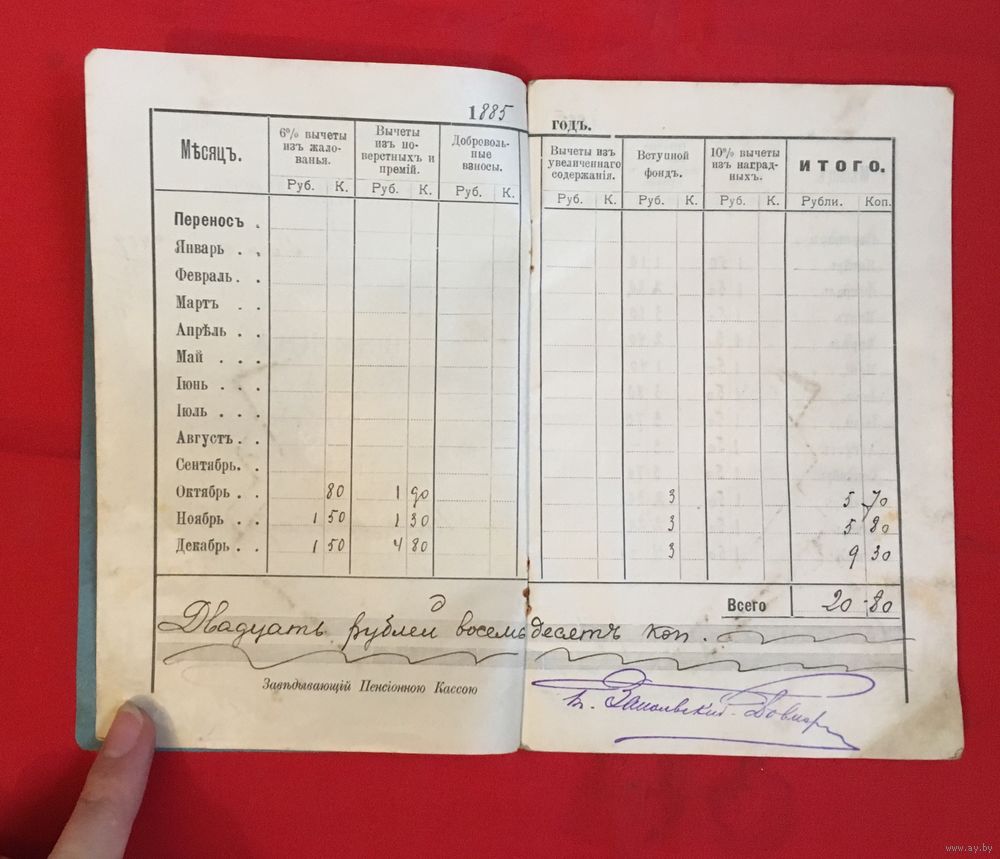 1885 годъ.
Мѣсяцъ. 6% вычеты изъ жалованья. Вычеты изъ поверстныхъ и премій. Добровольные взносы. Вычеты изъ увеличеннаго содержанія. Вступной фондъ. 10% вычеты изъ наградныхъ. ИТОГО.
Руб. К. Руб. К. Руб. К. Руб. К. Руб. К. Руб. К. Рубли. Коп.
Переносъ .
Январь . .
Февраль . .
Мартъ . .
Апрѣль . .
Май . . .
Іюнь . . .
Іюль . . .
Августъ . .
Сентябрь. .
Октябрь . . 80 1 90 3 5 70
Ноябрь . . 1 50 1 30 3 5 80
Декабрь . . 1 50 4 80 3 9 30
Всего 20 80
Двадцать рублей восемьдесятъ коп.
Завѣдывающій Пенсіонною Кассою
www.ay.by